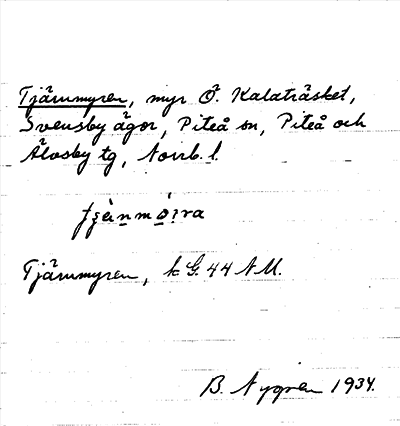 Tjärnmyren, myr Ö. Kalaträsket,
Svensby ägor, Piteå sn, Piteå och
Älvsby tg, Norrb. l.
Tjärnmyren, k G. 44 N U.
B. Nygren 1934.